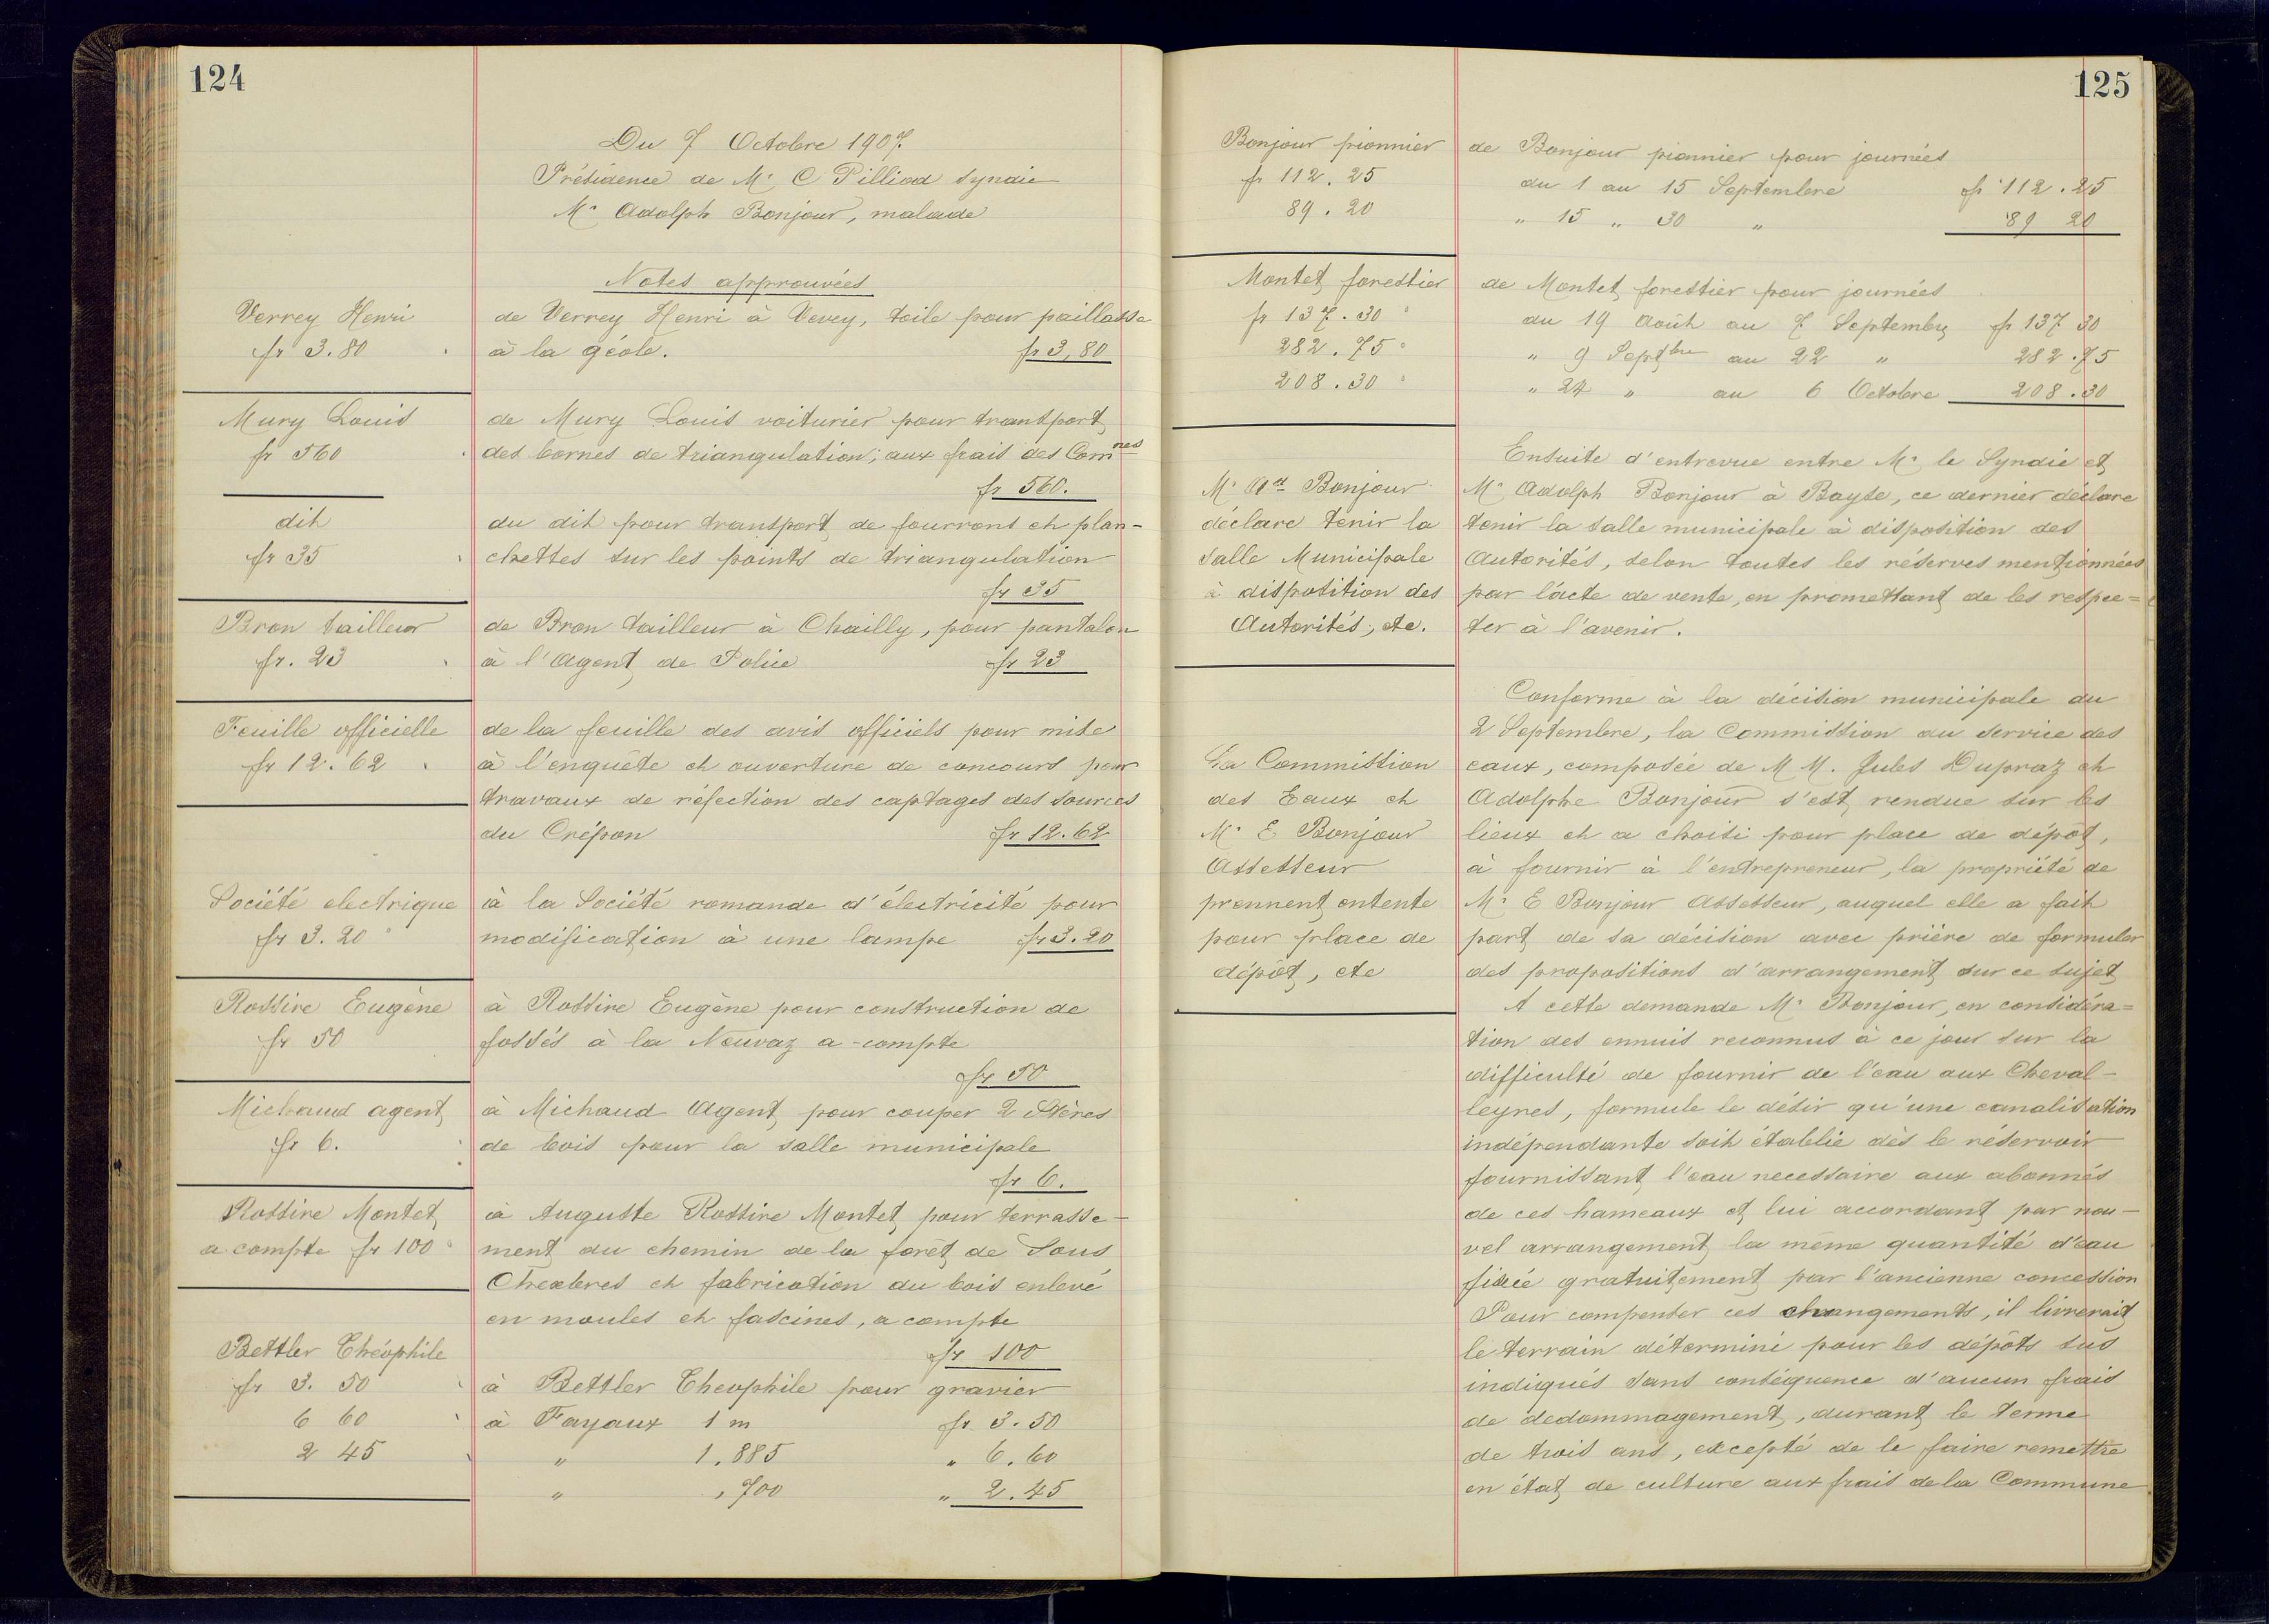 124
Du 7 Octobre 1907.
Présidence de Mr C Pilliod Syndic
Mr Adolph Bonjour, malade
Notes approuvées
Verrey Henri
fr 3.80
de Verrey Henri à Vevey, toile pour paillasse
à la géole. fr 3,80
Mury Louis
fr 560
de Mury Louis voiturier pour transport
des bornes de triangulation; aux frais des Comnes
fr 560.
dit
fr 35
du dit pour transport de fourrons et plan-
chettes sur les points de triangulation
fr 35
Bron tailleur
fr. 23
de Bron tailleur à Chailly, pour pantalon
à l'Agent de Police fr 23
Feuille officielle
fr 12.62
de la feuille des avis officiels pour mise
à l'enquête et ouverture de concours pour
travaux de réfection des captages des sources
du Crépon fr 12.62
Société electrique
fr 3.20
à la Société romande d'électricité pour
modification à une lampe fr 3.20
Rossire Eugène
fr 50
à Rossire Eugène pour construction de
fossés à la Neuvaz a-compte
fr 50
Michaud agent
fr 6.
à Michaud Agent pour couper 2 Stères
de bois pour la salle municipale
fr 6.
Rossire Montet
a compte fr 100
à Auguste Rossire Montet pour terrasse-
ment du chemin de la forêt de Sous
Chexbres et fabrication du bois enlevé
en moules et fascines, a compte
fr 100
Bettler Théophile
fr 3. 50
6 60
2 45
à Bettler Theophile pour gravier
à Fayaux 1 m fr. 3.50
" 1.885 " 6.60
" .700 " 2.45
125
Bonjour pionnier
fr 112.25
89.20
de Bonjour pionnier pour journées
du 1 au 15 Septembre fr 112.25
" 15 " 30 " 89 20
Montet forestier
fr 137.30
282.75
208.30
de Montet forestier pour journées
du 19 Août au 7 Septembre fr 137 30
" 9 Septbre au 22 " 282.75
" 24 " au 6 Octobre 208.30
Mr Ad Bonjour
déclare tenir la
Salle Municipale
à disposition des
Autorités, etc.
Ensuite d'entrevue entre Mr le Syndic et
Mr Adolph Bonjour à Bayse, ce dernier déclare
tenir la salle municipale à disposition des
Autorités, selon toutes les réserves mentionnées
par l'acte de vente, en promettant de les respec=
ter à l'avenir.
La Commission
des Eaux et
Mr E Bonjour
Assesseur
prennent entente
pour place de
dépôt, etc
Conforme à la décision municipale du
2 Septembre, la Commission du service des
eaux, composée de M M. Jules Dupraz et
Adolphe Bonjour s'est rendue sur les
lieux et a choisi pour place de dépôt,
à fournir à l'entrepreneur, la propriété de
Mr E Bonjour Assesseur, auquel elle a fait
part de sa décision avec prière de formuler
des propositions d'arrangement sur ce sujet
A cette demande Mr Bonjour, en considéra=
tion des ennuis reconnus à ce jour sur la
difficulté de fournir de l'eau aux Cheval-
leyres, formule le désir qu'une canalisation
indépendante soit établie dès le réservoir
fournissant l'eau necessaire aux abonnés
de ces hameaux et lui accordant par nou-
vel arrangement la même quantité d'eau
fixée gratuitement par l'ancienne concession
Pour compenser ces changements, il livrerait
le terrain déterminé pour les dépôts sus
indiqués sans conséquence d'aucun frais
de dedommagement, durant le terme
de trois ans, excepté de le faire remettre
en état de culture aux frais de la Commune